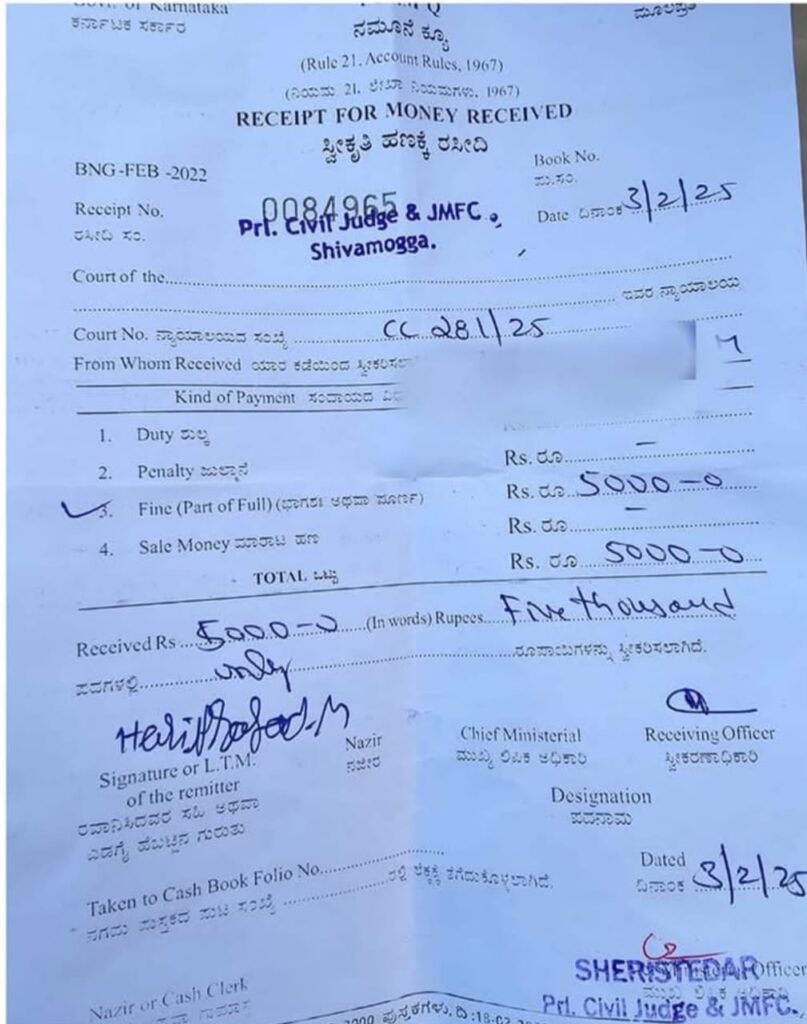 Govt. of Karnataka
ಕರ್ನಾಟಕ ಸರ್ಕಾರ
ಮೂಲಪ್ರತಿ
ನಮೂನೆ ಕ್ಯೂ
(Rule 21, Account Rules, 1967)
(ನಿಯಮ 21, ಲೇಖಾ ನಿಯಮಗಳು, 1967)
RECEIPT FOR MONEY RECEIVED
ಸ್ವೀಕೃತಿ ಹಣಕ್ಕೆ ರಸೀದಿ
BNG-FEB -2022
Book No.
ಪು.ಸಂ.
Receipt No. 0084965
ರಸೀದಿ ಸಂ.
Date ದಿನಾಂಕ 3/2/25
Prl. Civil Judge & JMFC.,
Shivamogga.
Court of the
ಇವರ ನ್ಯಾಯಾಲಯ
Court No. ನ್ಯಾಯಾಲಯದ ಸಂಖ್ಯೆ CC 281/25
From Whom Received ಯಾರ ಕಡೆಯಿಂದ M
Kind of Payment ಸಂದಾಯದ
1. Duty ಶುಲ್ಕ
2. Penalty ಜುಲ್ಮಾನೆ Rs. ರೂ. –
3. Fine (Part of Full) (ಭಾಗಶಃ ಅಥವಾ ಪೂರ್ಣ) Rs. ರೂ. 5000-0
4. Sale Money ಮಾರಾಟ ಹಣ Rs. ರೂ. –
TOTAL ಒಟ್ಟು Rs. ರೂ 5000-0
Received Rs 5000-0 (In words) Rupees Five thousand
ಪದಗಳಲ್ಲಿ only ರೂಪಾಯಿಗಳನ್ನು ಸ್ವೀಕರಿಸಲಾಗಿದೆ.
Signature or L.T.M.
of the remitter
ರವಾನಿಸಿದವರ ಸಹಿ ಅಥವಾ
ಎಡಗೈ ಹೆಬ್ಬೆಟ್ಟಿನ ಗುರುತು
Nazir
ನಜೀರ
Chief Ministerial
ಮುಖ್ಯ ಲಿಪಿಕ ಅಧಿಕಾರಿ
Receiving Officer
ಸ್ವೀಕರಣಾಧಿಕಾರಿ
Designation
ಪದನಾಮ
Taken to Cash Book Folio No.
ನಗದು ಪುಸ್ತಕದ ಪುಟ ಸಂಖ್ಯೆ ರಲ್ಲಿ ಲೆಕ್ಕಕ್ಕೆ ತೆಗೆದುಕೊಳ್ಳಲಾಗಿದೆ.
Dated
ದಿನಾಂಕ 3/2/25
Nazir or Cash Clerk
SHERISTEDAR Officer
Prl. Civil Judge & JMFC.,